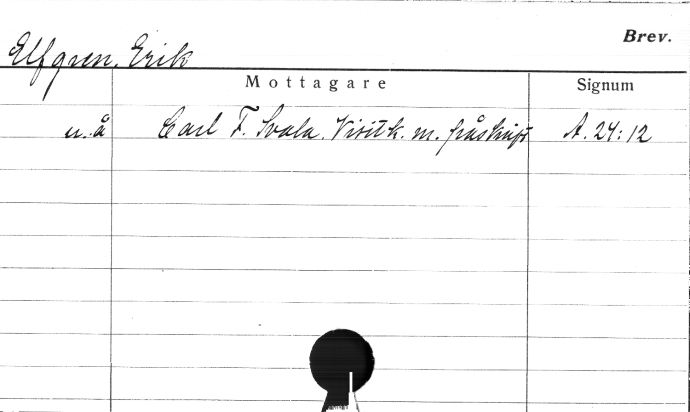 Brev.
Elfgren, Erik
Mottagare Signum
u. å Carl F. Svala. Visitk. m. påskrift A. 24:12